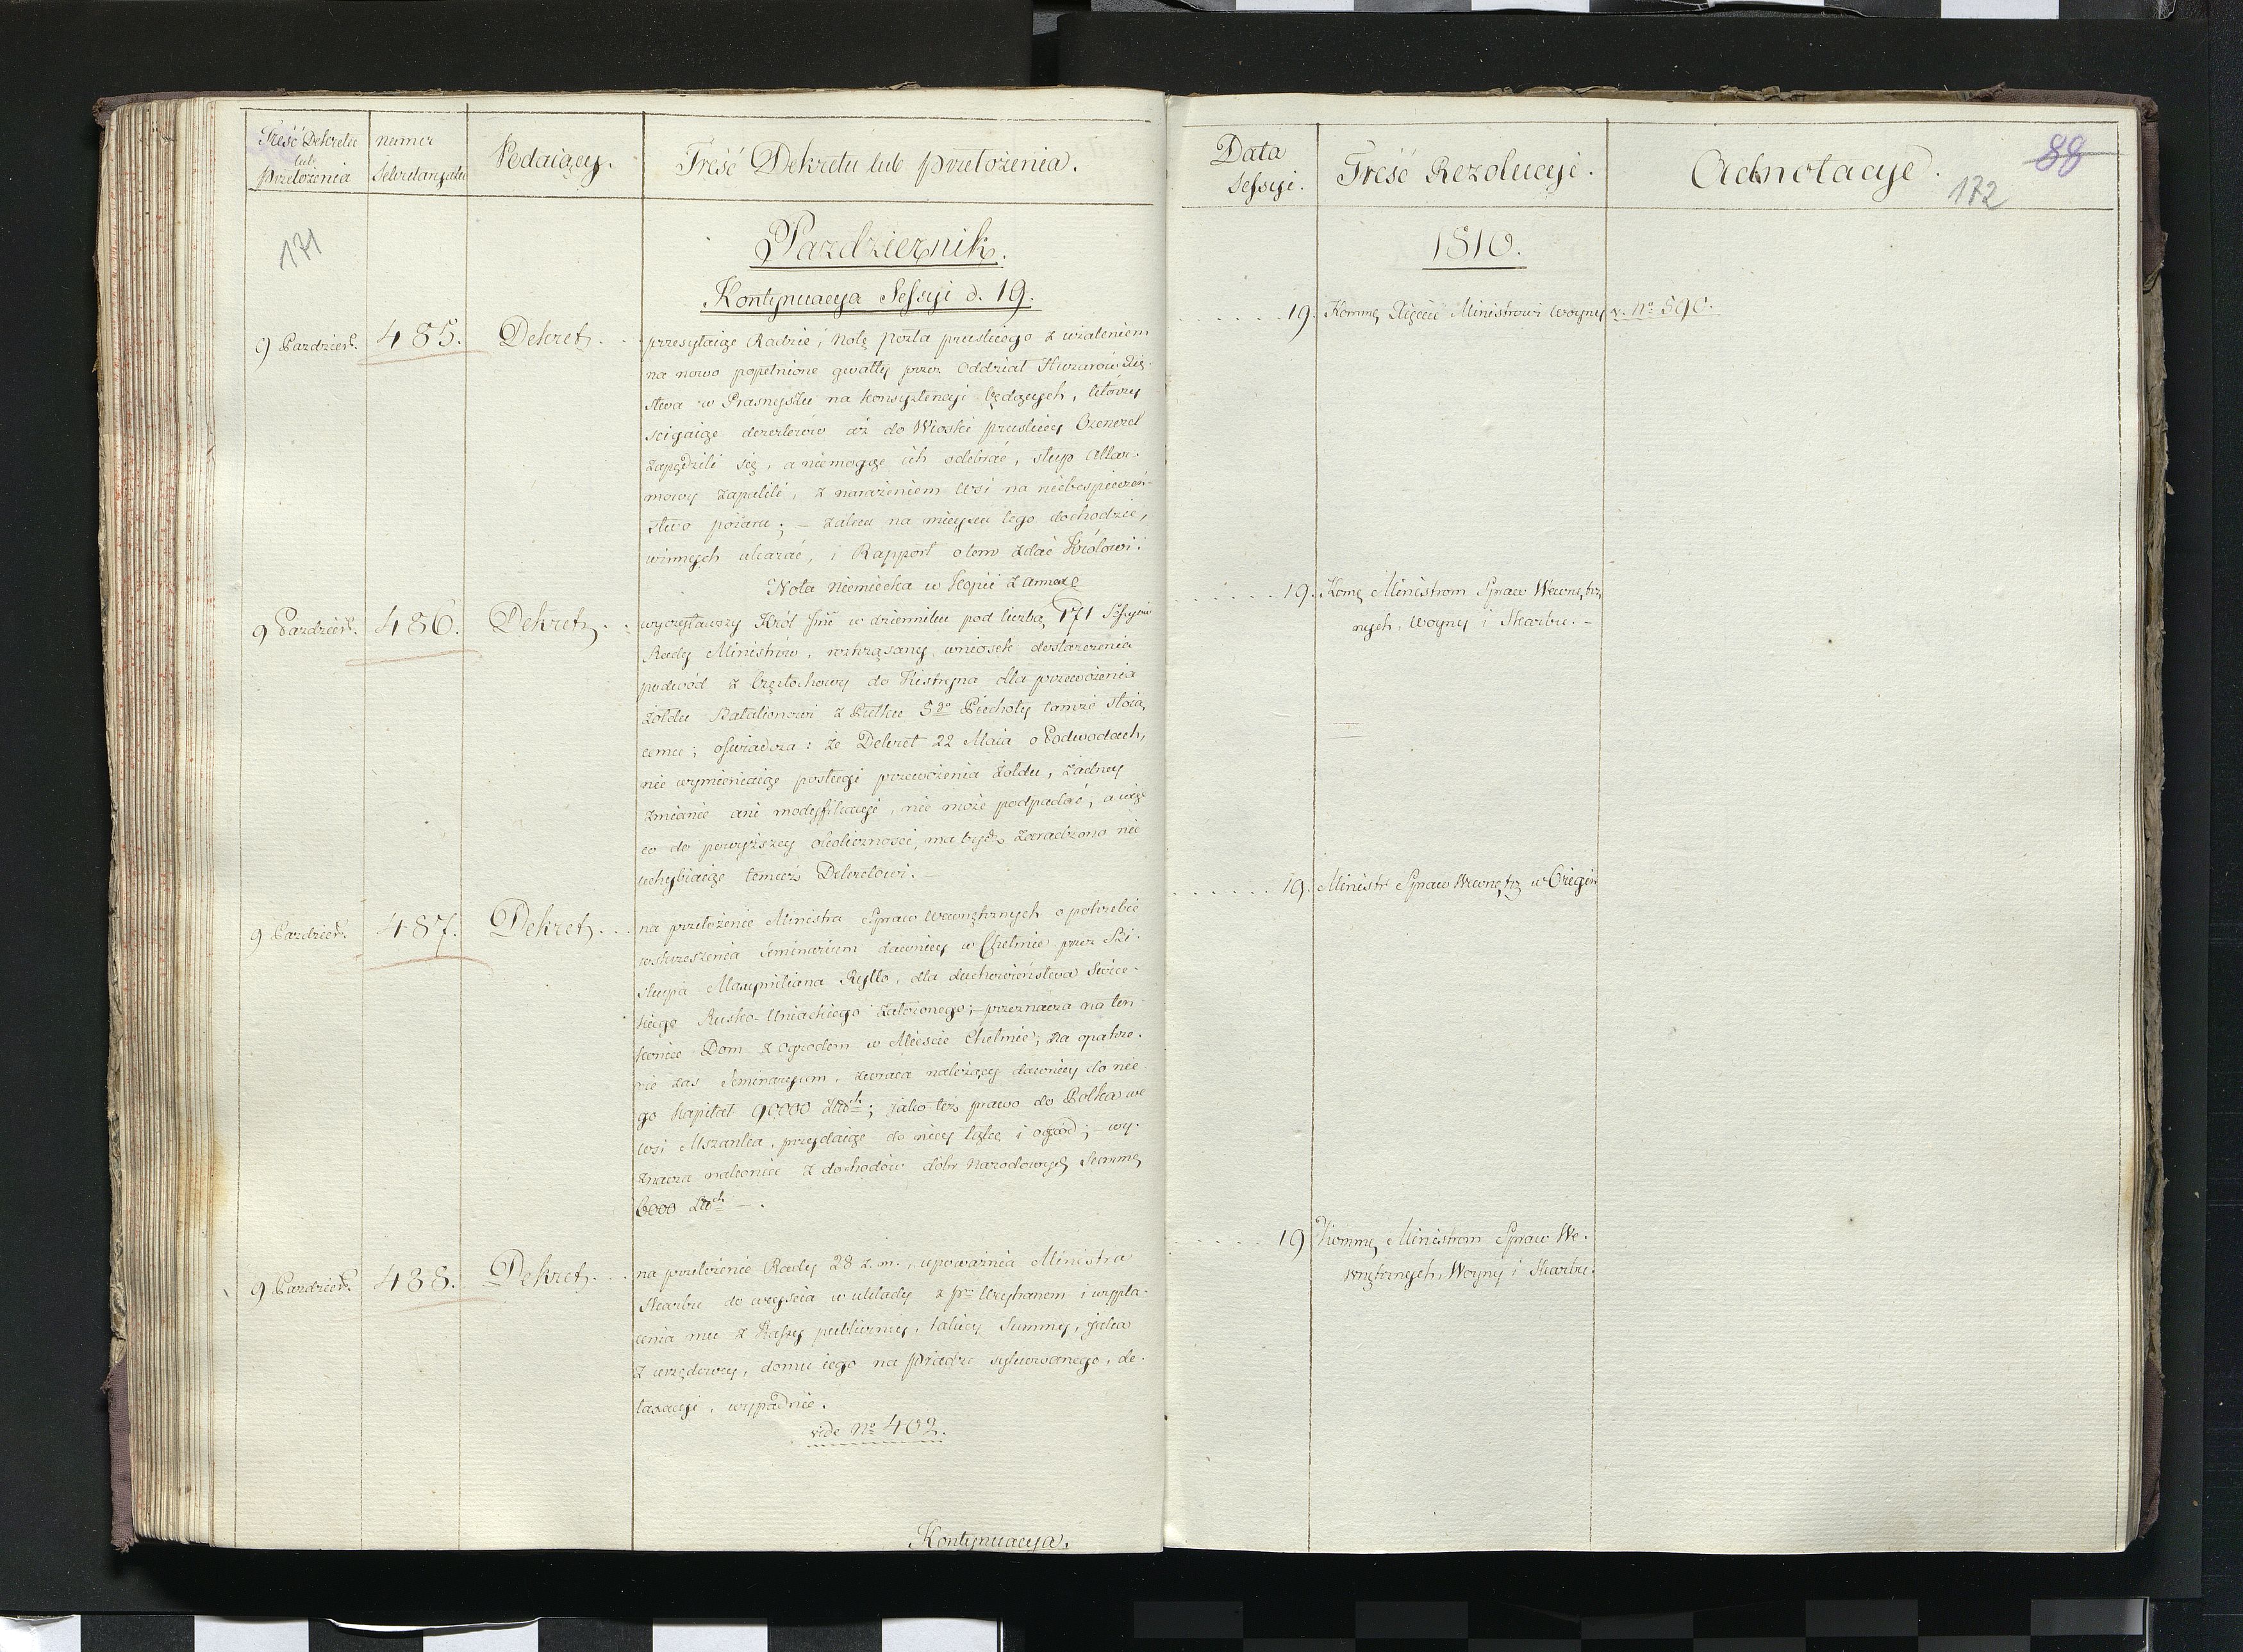 Treść Dekretu
lub
Przełożenia
numer
Sekretaryatu
Podaiący.
Treść Dekretu lub Przełożenia.
171
Pazdziernik.
Kontynuacya Sessyi d. 19.
9 Pazdzier. 485. Dekret
przesyłaiąc Radzie, Notę posła pruskiego z użaleniem
na nowo popełnione gwałty przez Oddział Huzarów Xię-
stwa w Prasnyszu na konsystencyi będących, którzy
scigaiąc dezerterów aż do Wioski pruskiey
zapędzili się, a niemogąc ich odebrać, słup Allar-
mowy zapalili, z narażeniem Wsi na niebespieczeń-
stwo pożaru; – zaleca na mieyscu tego dochodzić,
winnych ukarać, i Rapport o tem zdać Królowi.
Nota niemiecka w Kopii z annexe
9 Pazdzier. 486. Dekret
wyczytawszy Król Jmć w dzienniku pod liczbą 171 Sessyów
Rady Ministrów, roztrząsany wniosek dostarczenia
podwód z Częstochowy do Kistryna dla przewożenia
żołdu Batalionowi z Pułku 5go Piechoty tamże stoią
cemu; oświadcza: że Dekret 22 Maia o Podwodach,
nie wymieniaiąc posługi przewożenia żołdu, żadney
zmianie ani modyfikacyi, nie może podpadać, a więc
co do powyższey okoliczności, ma bydź zaradzono nie
uchybiaiąc temuż Dekretowi. –
9 Pazdzier. 487. Dekret
na przełożenie Ministra Spraw Wewnętrznych o potrzebie
wskrzeszenia Seminarium dawniey w Chełmie przez Bi-
skupa Maxymiliana Ryłło, dla duchowieństwa Swiec-
kiego Rusko-Uniackiego założonego; – przeznacza na ten
koniec Dom z Ogrodem w Mieście Chełmie; na opatrze-
nie zas Seminaryum, zwraca należący dawniey do nie
go kapitał 90000 Złch; jako też prawo do Folwa we
wsi Mszanka, przydaiąc do niey łąkę i ogród; – wy-
znacza nakoniec z dochodów dóbr Narodowych Summę
6000 Złch – .
9 Pazdzier. 488. Dekret
na przełożenie Rady 28 z. m., upoważnia Ministra
Skarbu do weyścia w układy z Pm Urybanem i wypła-
cenia mu z Kassy publiczney, takiey Summy, jaka
z urzędowey, domu iego na Pradze sytuowanego, de-
taxacyi, wypadnie.
vide No 402.
Kontynuacya.
Data
Sessyi.
Treść Rezolucyi.
Adnotacye.
88
172
1810.
19. Kommę Xięciu Ministrowi Woyny v. No 590.
19. Komę Ministrom Spraw Wewnętrz
nych, Woyny i Skarbu. –
19. Ministr Spraw Wewnętrz w Origin
19 Kommę Ministrom Spraw We-
wnętrznych, Woyny i Skarbu.